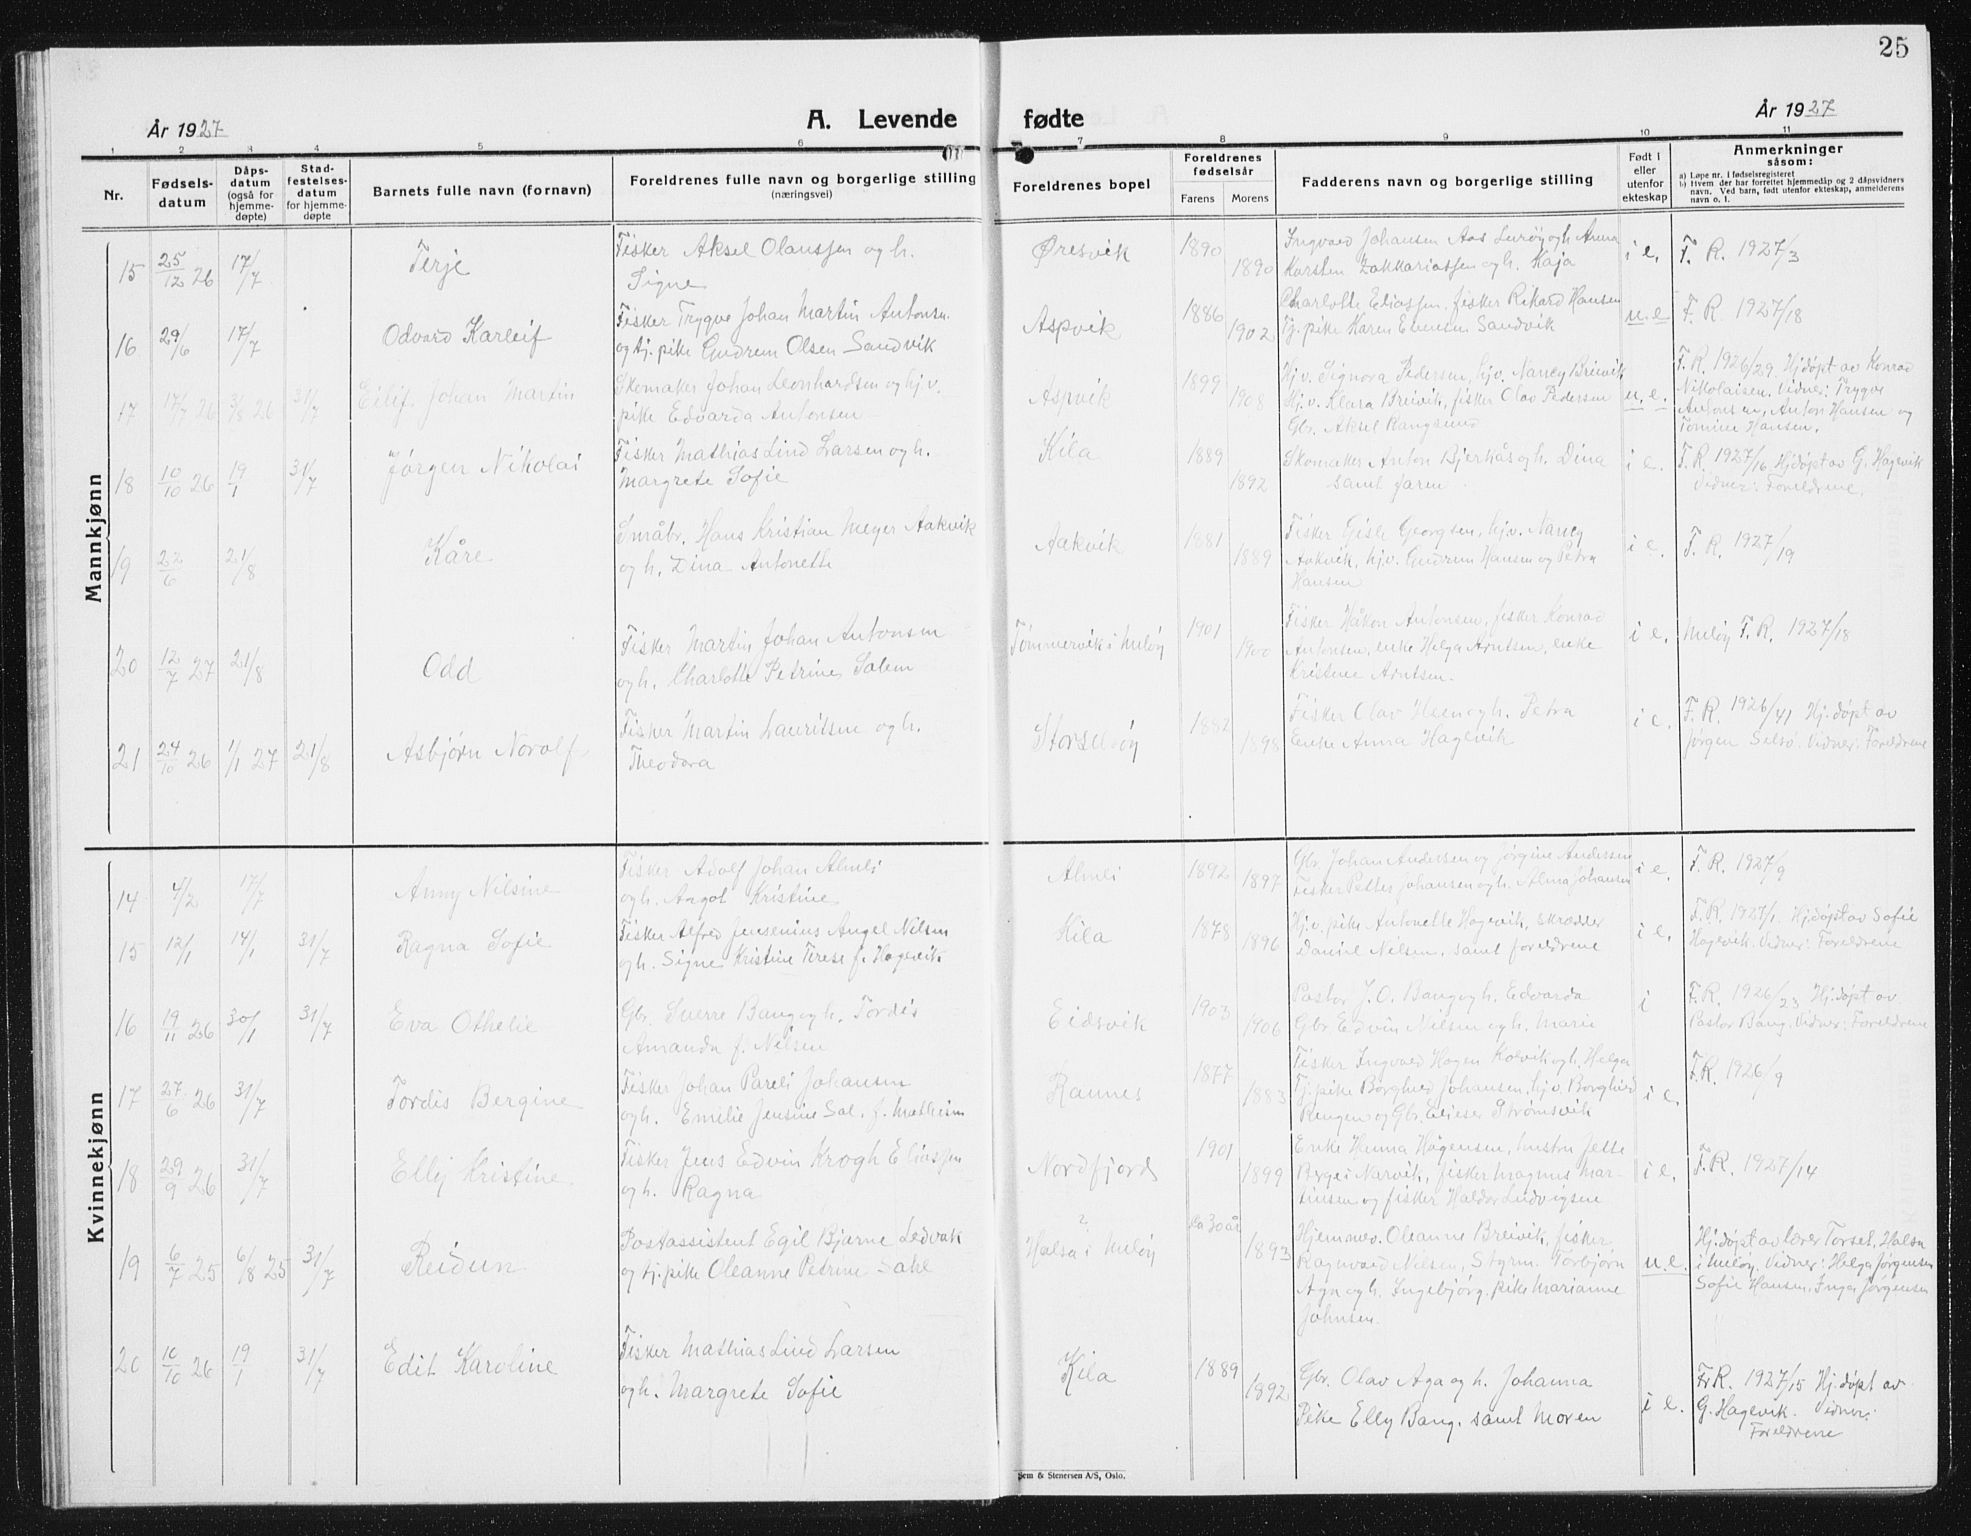 25
År 1927
A. Levende fødte
År 1927
1 2 3 4 5 6 7 8 9 10 11
Nr.
Fødsels-
datum
Dåps-
datum
(også for
hjemme-
døpte)
Stad-
festelses-
datum
for hjemme-
døpte
Barnets fulle navn (fornavn)
Foreldrenes fulle navn og borgerlige stilling
(næringsvei)
Foreldrenes bopel
Foreldrenes
fødselsår
Farens Morens
Fadderens navn og borgerlige stilling
Født i
eller
utenfor
ekteskap
Anmerkninger
såsom:
a) Løpe nr. i fødselsregisteret
b) Hvem der har forrettet hjemmedåp og 2 dåpsvidners
navn. Ved barn, født utenfor ekteskap, anmelderens
navn o. l.
Mannkjønn
15 25/12 26 17/7 Terje
Fisker Aksel Olaussen og h.
Signe
Øresvik 1890 1890
Ingvald Johansen Aas Lurøy og h. Anna
Karsten Zakkariassen og h. Kaja
i e. F. R. 1927/3
16 29/6 17/7 Odvard Karleif
Fisker Trygve Johan Martin Antonsen
og tj. pike Gudrun Olsen Sandvik
Aspvik 1886 1902
Charlotte Eliassen, fisker Rikard Hansen
Tj. pike Karen Evensen Sandvik
u. e F. R. 1927/18
17 17/7 26 3/8 26 31/7 Eilif Johan Martin
Skomaker Johan Leonhardsen og hj. v.
pike Edvarda Antonsen
Aspvik 1899 1908
Hj. v. Signora Pedersen, hj. v. Nancy Breivik
Hj. v. Klara Breivik, fisker Olav Pedersen
Gbr. Aksel Rangsund
u. e.
F. R. 1926/29 Hj. døpt av Konrad
Nikolaisen. Vidner: Trygve
Antonsen, Anton Hansen og
Tomine Hansen.
18 10/10 26 19/1 31/7 Jørgen Nikolai
Fisker Mathias Lind Larsen og h.
Margrete Sofie
Kila 1889 1892
Skomaker Anton Bjerkås og h. Dina
samt faren
i e.
F. R. 1927/16 Hj. døpt av G. Hagevik
Vidner: Foreldrene.
19 22/6 21/8 Kåre
Småbr. Hans Kristian Meyer Aakvik
og h. Dina Antonette
Aakvik 1881 1889
Fisker Gisle Georgsen, hj. v. Nancy
Aakvik, hj. v. Gudrun Hansen og Petra
Hansen
i e. F. R. 1927/19
20 12/7 27 21/8 Odd
Fisker Martin Johan Antonsen
og h. Charlotte Petrine Salem
Tømmervik i Meløy 1901 1900
Fisker Håkon Antonsen, fisker Konrad
Antonsen, enke Helga Arntsen, enke
Kristine Arntsen.
i e. Meløy F. R. 1927/18
21 24/10 26 1/1 27 21/8 Asbjørn Norolf
Fisker Martin Lauritsen og h.
Theodora
Storselsøy 1882 1898
Fisker Olav Heen og h. Petra
Enke Anna Hagevik
i e.
F. R. 1926/41 Hj. døpt av
Jørgen Selsö. Vidner: Foreldrene
Kvinnekjønn
14 4/2 17/7 Anny Nilsine
Fisker Adolf Johan Almli
og h. Angot Kristine
Almli 1892 1897
Gbr. Johan Andersen og Jørgine Andersen
Fisker Petter Johansen og h. Alma Johansen
i e. F. R. 1927/9
15 12/1 14/1 31/7 Ragna Sofie
Fisker Alfred Jensenius Angel Nilsen
og h. Signe Kristine Terese f. Hagevik
Kila 1878 1896
Hj. v. pike Antonette Hagevik, skredder
Daniel Nilsen, samt foreldrene
i e.
F. R. 1927/1. Hj. døpt av Sofie
Hagevik. Vidner: Foreldrene
16 19/11 26 30/1 31/7 Eva Othelie
Gbr. Sverre Bang og h. Tordis
Amanda f. Nilsen
Eidsvik 1903 1906
Pastor J. O. Bang og h. Edvarda
Gbr. Edvin Nilsen og h. Marie
i
F. R. 1926/23 Hj. døpt av
Pastor Bang. Vidner: Foreldrene
17 27/6 26 31/7 Tordis Bergine
Fisker Johan Pareli Johansen
og h. Emilie Jensine Sal. f. Mathisen
Rannes 1877 1883
Fisker Ingvald Hagen Kolvik og h. Helga
Tj. pike Borghild Johansen, hj. v. Borghild
Rengen og Gbr. Elieser Strømsvik
i e. F. R. 1926/9
18 29/9 26 31/7 Elly Kristine
Fisker Jens Edvin Krogh Eliassen
og h. Ragna
Nordfjord 1901 1899
Enke Hanna Hågensen, hustru Jette
Berge i Narvik, fisker Magnus Mar-
tinsen og fisker Haldor Ludvigsen
i e. F. R. 1927/14
19 6/7 25 6/8 25 31/7 Reidun
Postassistent Egil Bjarne Ledvak
og tj. pike Oleanne Petrine Sahl
? Halsa i Meløy ca 30 år 1893
Hjemmev. Oleanne Breivik, fisker
Ragnvald Nilsen, Styrm. Torbjørn
Aga og h. Ingebjørg. pike Marianne
Johnsen
u. e.
Hj. døpt av lærer Torset, Halsa
i Meløy. Vidner: Helga Jørgensen
Sofie Hansen, Inga Jørgensen
20 10/10 26 19/1 31/7 Edit Karoline
Fisker Mathias Lind Larsen
og h. Margrete Sofie
Kila 1889 1892
Gbr. Olav Aga og h. Johanna
Pike Elly Bang, samt moren
i e.
F. R. 1927/15 Hj. døpt av
G. Hagevik. Vidner:
Foreldrene
Sem & Stenersen A/S, Oslo.